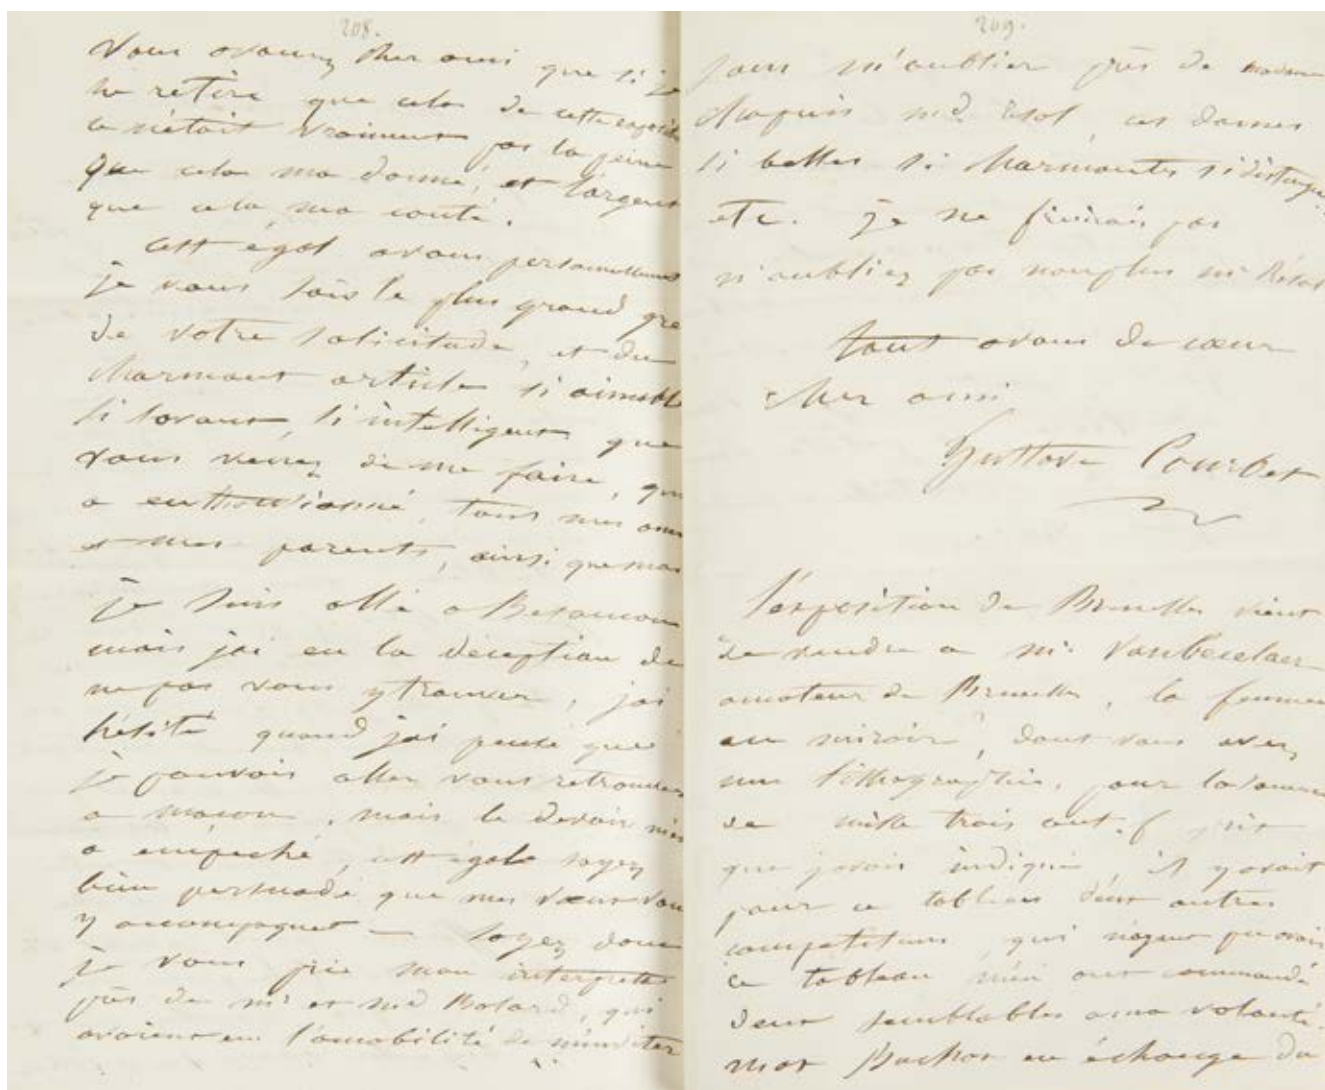 208.
Vous avouez cher ami que si je
ne retire que cela de cette
ce n'était vraiment pas la peine
que cela ma donné, et l'argent
que cela ma couté.
cest égal
je vous sais le plus grand gre
de votre solicitude, et du
charmant article si aimable
si savant, si intelligent que
vous venez de me faire, qui
a enthousiasmé, tous mes amis
et mes parents, ainsi que moi
je suis allé a Besancon
mais jai eu la déception de
ne pas vous y trouver, jai
hésité quand jai pensé que
je pouvais aller vous retrouver
a macon, mais le devoir m'en
a empeché, cest égale soyez
bien persuadé que mes vœux vous
y accompagnent — soyez donc
je vous prie mon interprete
près de mr et md qui
avaient eu l'amabilité de m'inviter
209.
sans m'oublier près de madame
md. ces dames
si belles si charmantes si distinguées
etc. je ne finirais pas
n'oubliez pas non plus mr
tout avous de cœur
cher ami
Gustave Courbet
l'exposition de Bruxelles vient
de vendre a mr.
amateur de Bruxelles, la femme
au miroir, dont vous avez
une lithographie, pour la somme
de mille trois cent. f prix
que javais indiqué, il y avait
pour ce tableau deux autres
competiteurs qui n'ayant pu avoir
ce tableau m'en ont commandé
deux semblables a ma volonté.
en échange du